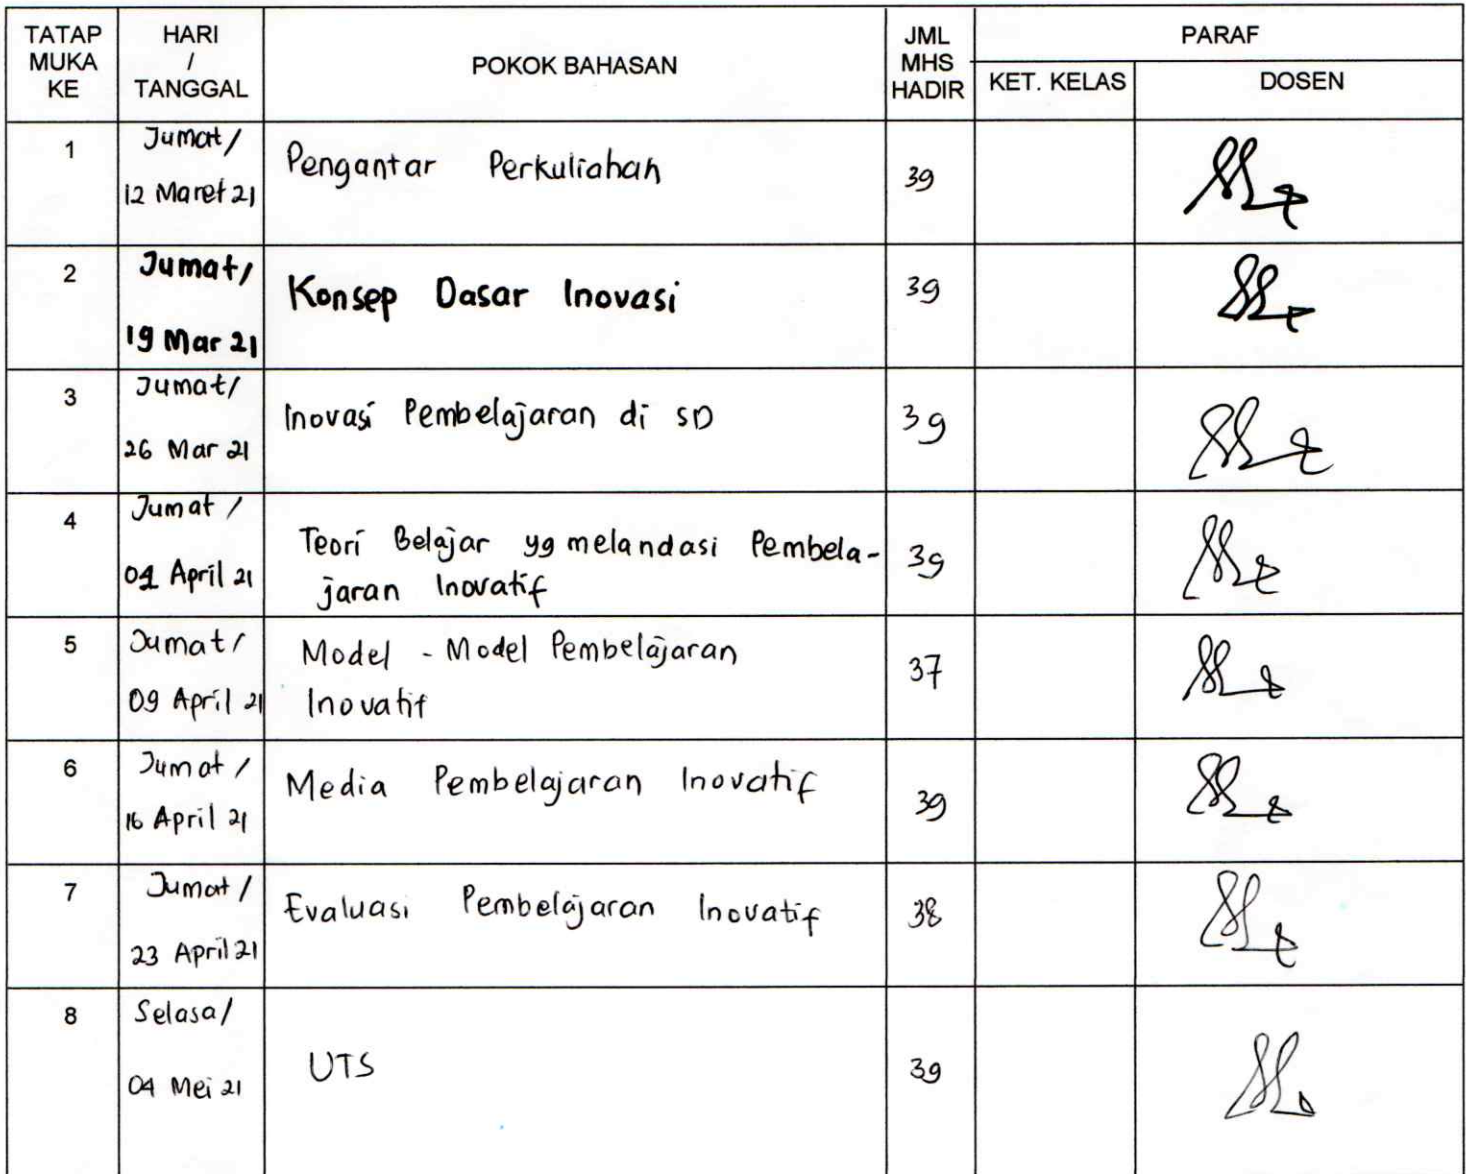 TATAP MUKA KE
HARI / TANGGAL
POKOK BAHASAN
JML MHS HADIR
PARAF
KET. KELAS
DOSEN
1
Jumat/
12 Maret 21
Pengantar Perkuliahan
39
2
Jumat/
19 Mar 21
Konsep Dasar Inovasi
39
3
Jumat/
26 Mar 21
Inovasi Pembelajaran di SD
39
4
Jumat /
April 21
Teori Belajar yg melandasi Pembela-
jaran Inovatif
39
5
Jumat/
09 April 21
Model - Model Pembelajaran
Inovatif
37
6
Jumat /
16 April 21
Media Pembelajaran Inovatif
39
7
Jumat /
23 April 21
Evaluasi Pembelajaran Inovatif
38
8
Selasa/
04 Mei 21
UTS
39